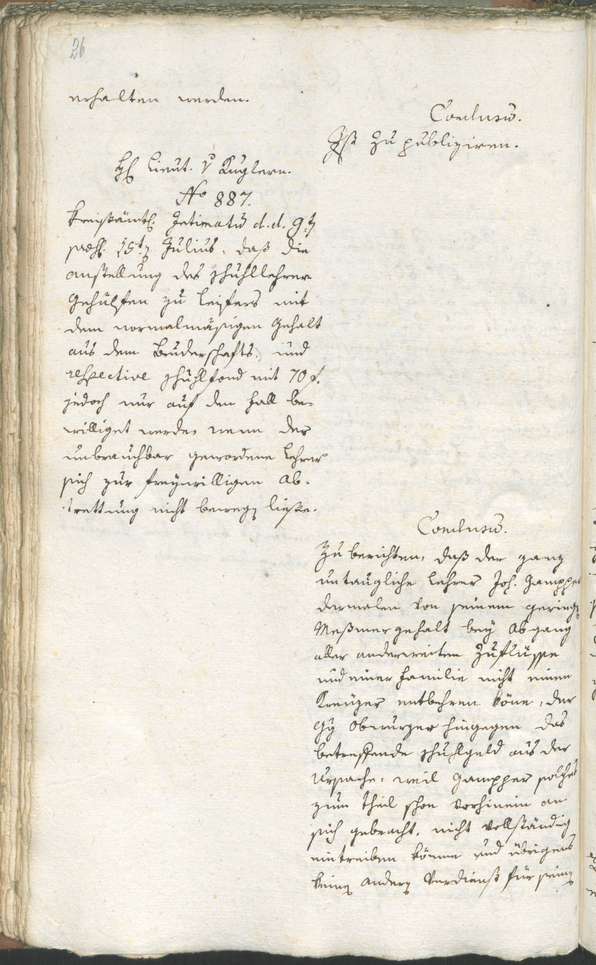 26
erhalten werden.
Conclusū.
Ist zu publiziren.
H. Lieut. v Kuglern.
No 887.
Kreisämtl. Intimatū d.d. 9t
praes. 15t Julius, daß die
anstellung des Schuhllehrer
Gehülfen zu Leifers mit
dem normalmäßigen Gehalt
aus dem Bruderschafts, und
respective Schuhlfond mit 70 f.
jedoch nur auf den Fall be-
williget werde, wenn der
unbrauchbar gewordene Lehrer
sich zur freywilligen Ab-
trettung nicht bewegen ließe.
Conclusū.
Zu berichten, daß der ganz
untaugliche Lehrer Joh. Gampper
dermalen von seinem gering
Meßmergehalt bey Abgang
aller anderweiten Zuflüsse
und einer Familie nicht einen
Kreuzer entbehren köne, der
Obwurzer hingegen das
betreffende Schuhlgeld aus der
Ursache, weil Gampper solches
zum theil schon vorhinein an
sich gebracht, nicht vollständig
eintreiben könne und übrigens
keinen andern Verdienst für seine